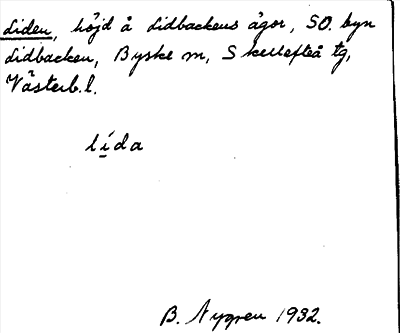 Liden, höjd å Lidbackens ägor, SO. byn
Lidbacken, Byske sn, Skellefteå tg,
Västerb. l.
lida
B. Nygren 1932.